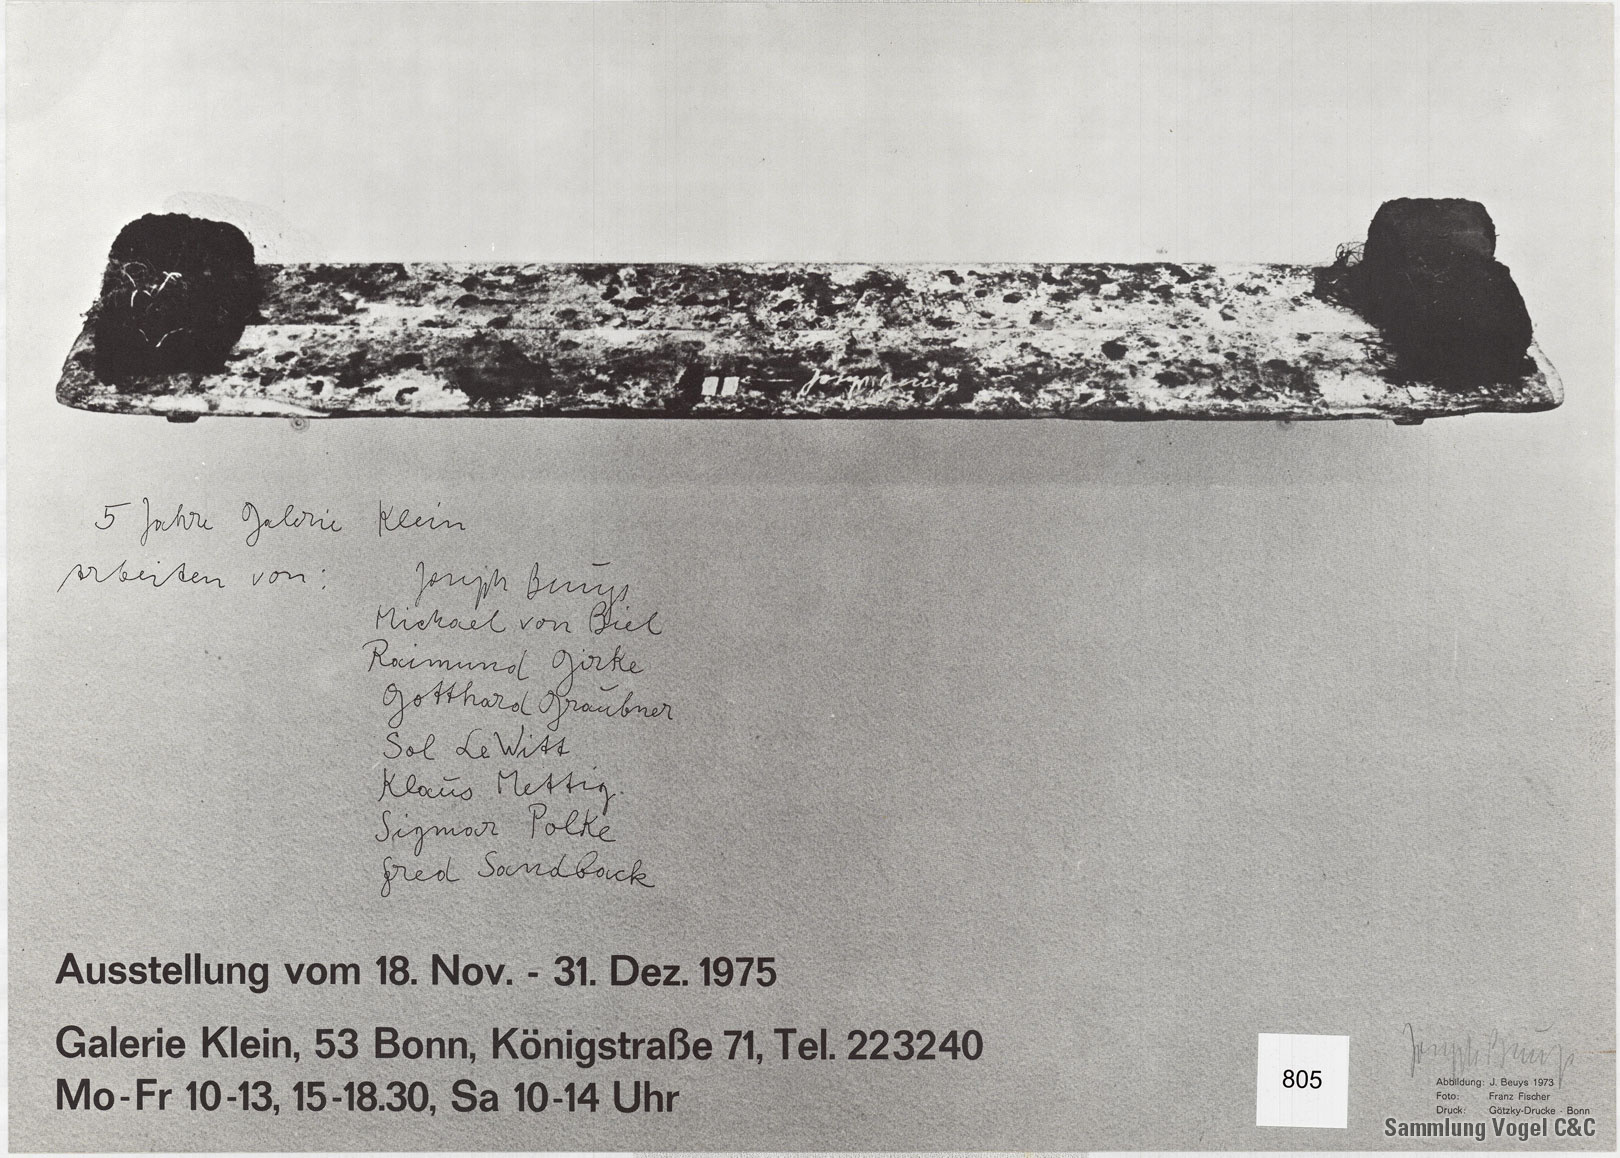 Joseph Beuys
5 Jahre Galerie Klein
Arbeiten von: Joseph Beuys
Michael von Biel
Raimund Girke
Gotthard Graubner
Sol LeWitt
Klaus Mettig.
Sigmar Polke
Fred Sandback
Ausstellung vom 18. Nov. - 31. Dez. 1975
Galerie Klein, 53 Bonn, Königstraße 71, Tel. 223240
Mo-Fr 10-13, 15-18.30, Sa 10-14 Uhr
805
Joseph Beuys
Abbildung: J. Beuys 1973
Foto: Franz Fischer
Druck: Götzky-Drucke - Bonn
Sammlung Vogel C&C